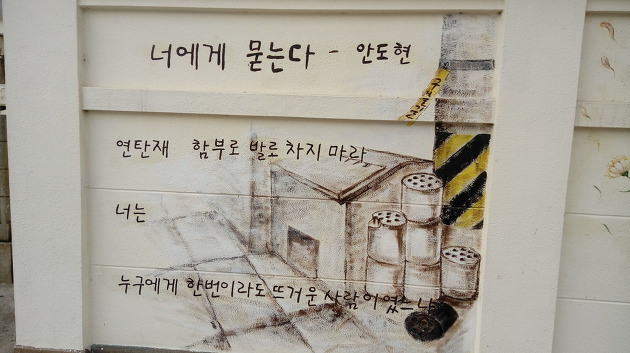 너에게 묻는다 - 안도현
연탄재 함부로 발로 차지 마라
너는
누구에게 한번이라도 뜨거운 사람이었느냐